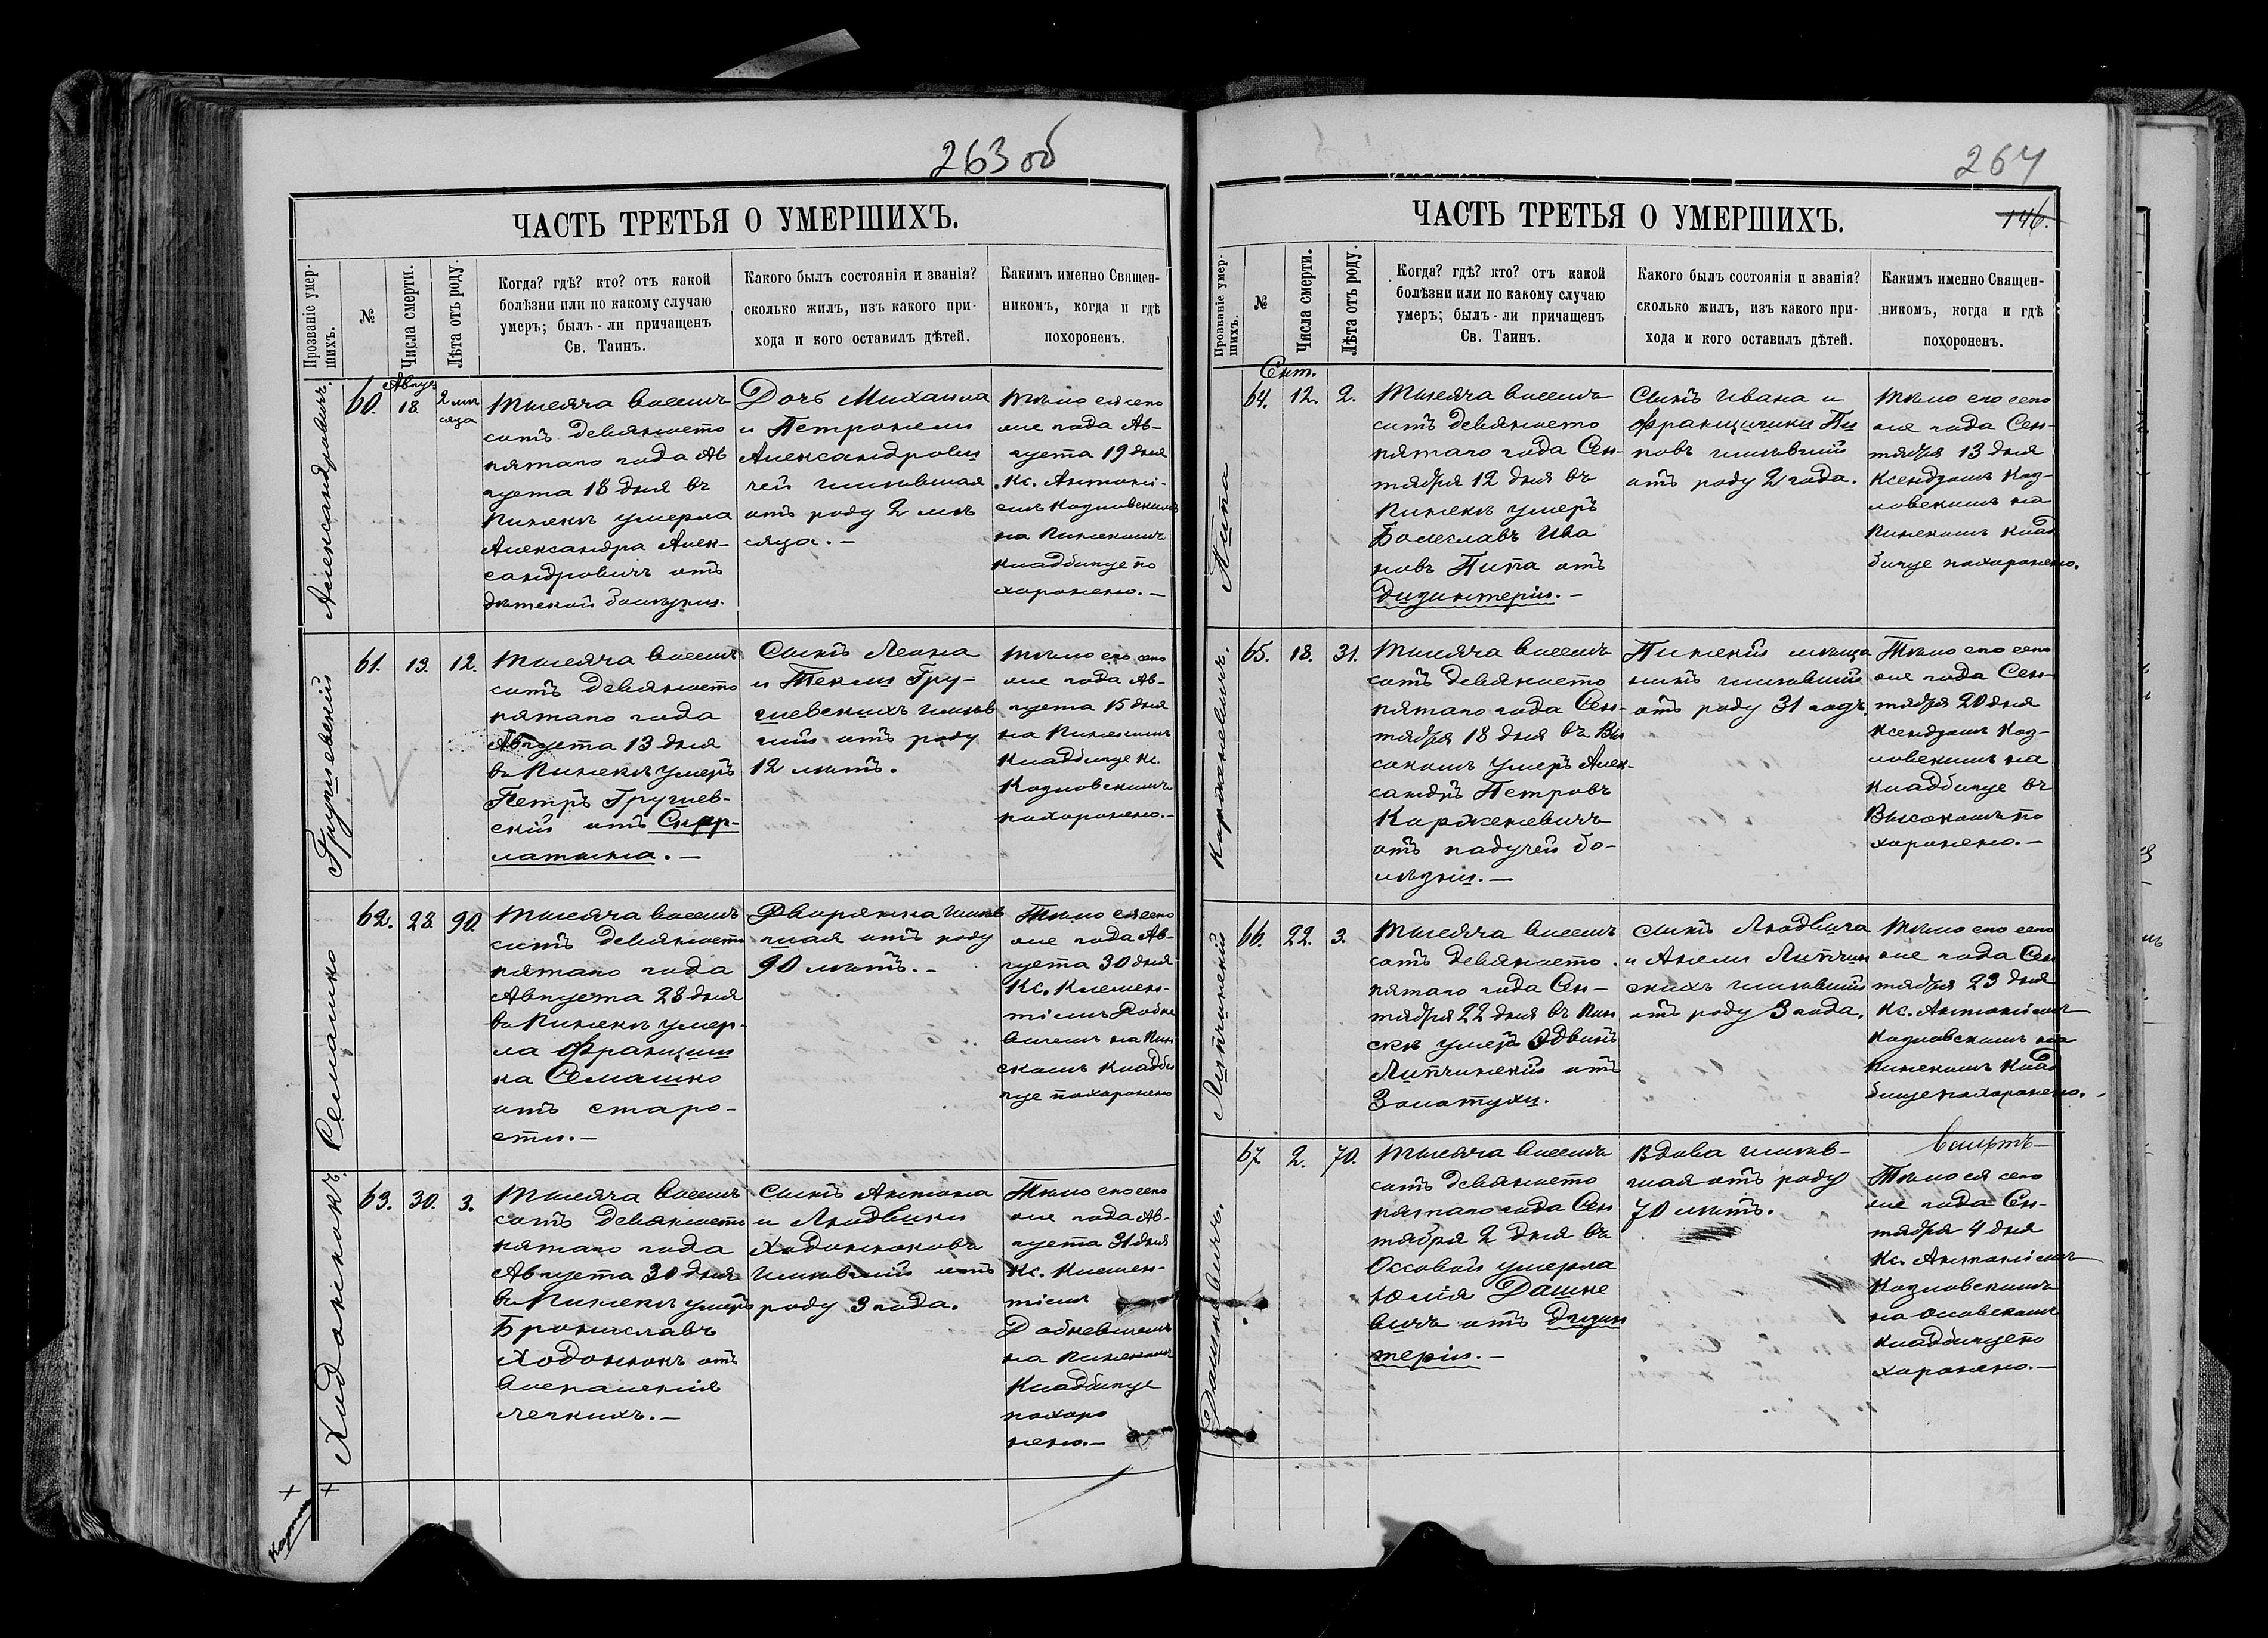 263 об
ЧАСТЬ ТРЕТЬЯ О УМЕРШИХЪ.
Прозваніе умер-
шихъ.
№
Числа смерти.
Лѣта отъ роду.
Когда? гдѣ? кто? отъ какой
болѣзни или по какому случаю
умеръ; былъ-ли причащенъ
Св. Таинъ.
Какого былъ состоянія и званія?
сколько жилъ, изъ какого при-
хода и кого оставилъ дѣтей.
Какимъ именно Священ-
никомъ, когда и гдѣ
похороненъ.
Александровичъ.
60.
Авгус.
18.
2 мѣ
сяца
Тысяча восемь
сотъ девяносто
пятаго года Ав
густа 18 дня въ
Пинскѣ умерла
Александра Алек-
сандровичъ отъ
дѣтской болѣзни.
Дочь Михаила
и Петронели
Александрови
чей жившая
отъ роду 2 мѣ
сяца.—
Тѣло ея сего
же года Ав-
густа 19 дня
Кс. Антоні-
емъ Козловскимъ
на Пинскомъ
кладбище по
хоронено.—
Грушевскій
61.
13.
12.
Тысяча восемь
сотъ девяносто
пятаго года
Августа 13 дня
въ Пинскѣ умеръ
Петръ Грушев-
скій отъ Скар-
латына.—
Сынъ Леона
и Текли Гру-
шевскихъ жив
шій отъ роду
12 лѣтъ.
Тѣло его сего
же года Ав-
густа 15 дня
на Пинскомъ
Кладбище Кс.
Козловскимъ
похоронено.—
Семашко
62.
28.
90.
Тысяча восемь
сотъ девяносто
пятаго года
Августа 28 дня
въ Пинскѣ умер-
ла Францишк
ка Семашко
отъ старо-
сти.—
Дворянка жив
шая отъ роду
90 лѣтъ.—
Тѣло ея сего
же года Ав-
густа 30 дня
Кс. Клемен-
тіемъ Добке
вичемъ на Пин
скомъ Кладби
ще похоронено
Ходонокъ.
63.
30.
3.
Тысяча восемь
сотъ девяносто
пятаго года
Августа 30 дня
въ Пинскѣ умеръ
Брониславъ
Ходонокъ отъ
воспаленія
легкихъ.—
Сынъ Антона
и Людвики
Ходоноковъ
жившій отъ
роду 3 года.
Тѣло его сего
же года Ав-
густа 31 дня
Кс. Клемен-
тіемъ
Добкевичемъ
на Пинскомъ
Кладбище
похоро
нено.—
264
146.
ЧАСТЬ ТРЕТЬЯ О УМЕРШИХЪ.
Прозваніе умер-
шихъ.
№
Числа смерти.
Лѣта отъ роду.
Когда? гдѣ? кто? отъ какой
болѣзни или по какому случаю
умеръ; былъ-ли причащенъ
Св. Таинъ.
Какого былъ состоянія и званія?
сколько жилъ, изъ какого при-
хода и кого оставилъ дѣтей.
Какимъ именно Священ-
никомъ, когда и гдѣ
похороненъ.
Пипа
64.
Сент.
12.
2.
Тысяча восемь
сотъ девяносто
пятаго года Сен-
тября 12 дня въ
Пинскѣ умеръ
Болеславъ Ива
новъ Пипа отъ
Дизинтеріи.—
Сынъ Ивана и
Францишки Пи
повъ жившій
отъ роду 2 года.
Тѣло его сего
же года Сен-
тября 13 дня
Ксендзомъ Коз-
ловскимъ на
Пинскомъ Клад
бище похоронено.
Корженевичъ.
65.
18.
31.
Тысяча восемь
сотъ девяносто
пятаго года Сен-
тября 18 дня въ Вы
сокомъ умеръ Алек-
сандръ Петровъ
Корженевичъ
отъ падучей бо-
лѣзни.—
Пинскій мѣща
нинъ жившій
отъ роду 31 годъ.
Тѣло его сего
же года Сен-
тября 20 дня
Ксендзомъ Коз-
ловскимъ на
кладбище въ
Высокомъ по
хоронено.—
Липчинскій
66.
22.
3.
Тысяча восемь
сотъ девяносто
пятаго года Сен-
тября 22 дня въ Пин
скѣ умеръ Эдвинъ
Липчинскій отъ
Золотухи.
Сынъ Людвига
и Анели Липчин
скихъ жившій
отъ роду 3 года.
Тѣло его сего
же года Сен
тября 23 дня
Кс. Антоніемъ
Козловскимъ на
Пинскомъ Клад
бище похоронено.
Дашкевичъ.
67.
2.
70.
Тысяча восемь
сотъ девяносто
пятаго года Сен
тября 2 дня въ
Оссовой умерла
Юлія Дашке
вичъ отъ Дизин
теріи.—
Вдова жив-
шая отъ роду
70 лѣтъ.
Тѣло ея сего
же года Сен-
тября 4 дня
Кс. Антоніемъ
Козловскимъ
на Осовскомъ
кладбище по
хоронено.—